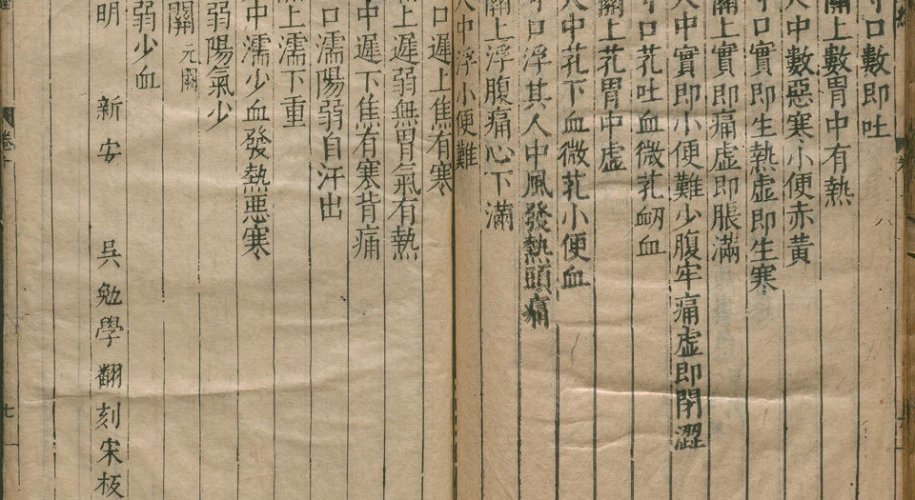 寸口數即吐
關上數胃中有熱
尺中數惡寒小便赤黃
寸口實即生熱虛即生寒
關上實即痛虛即脹滿
尺中實即小便難少腹牢痛虛即閉澀
寸口芤吐血微芤衂血
關上芤胃中虛
尺中芤下血微芤小便血
寸口浮其人中風發熱頭痛
關上浮腹痛心下滿
尺中浮小便難
寸口遲上焦有寒
關上遲弱無胃氣有熱
尺中遲下焦有寒背痛
寸口濡陽弱自汗出
關上濡下重
尺中濡少血發熱惡寒
弱陽氣少
關元闕
弱少血
明 新安 吳勉學 翻刻宋板
卷十 七